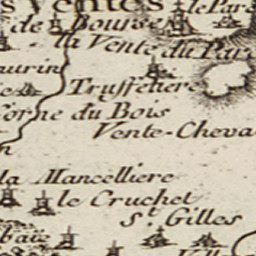 s Ventes
de Bourse
le Parc
la Vente du Par
aurin
Truffetiere
Corne du Bois
Vente-Cheva
n
la Mancelliere
le Cruchet
St. Gilles